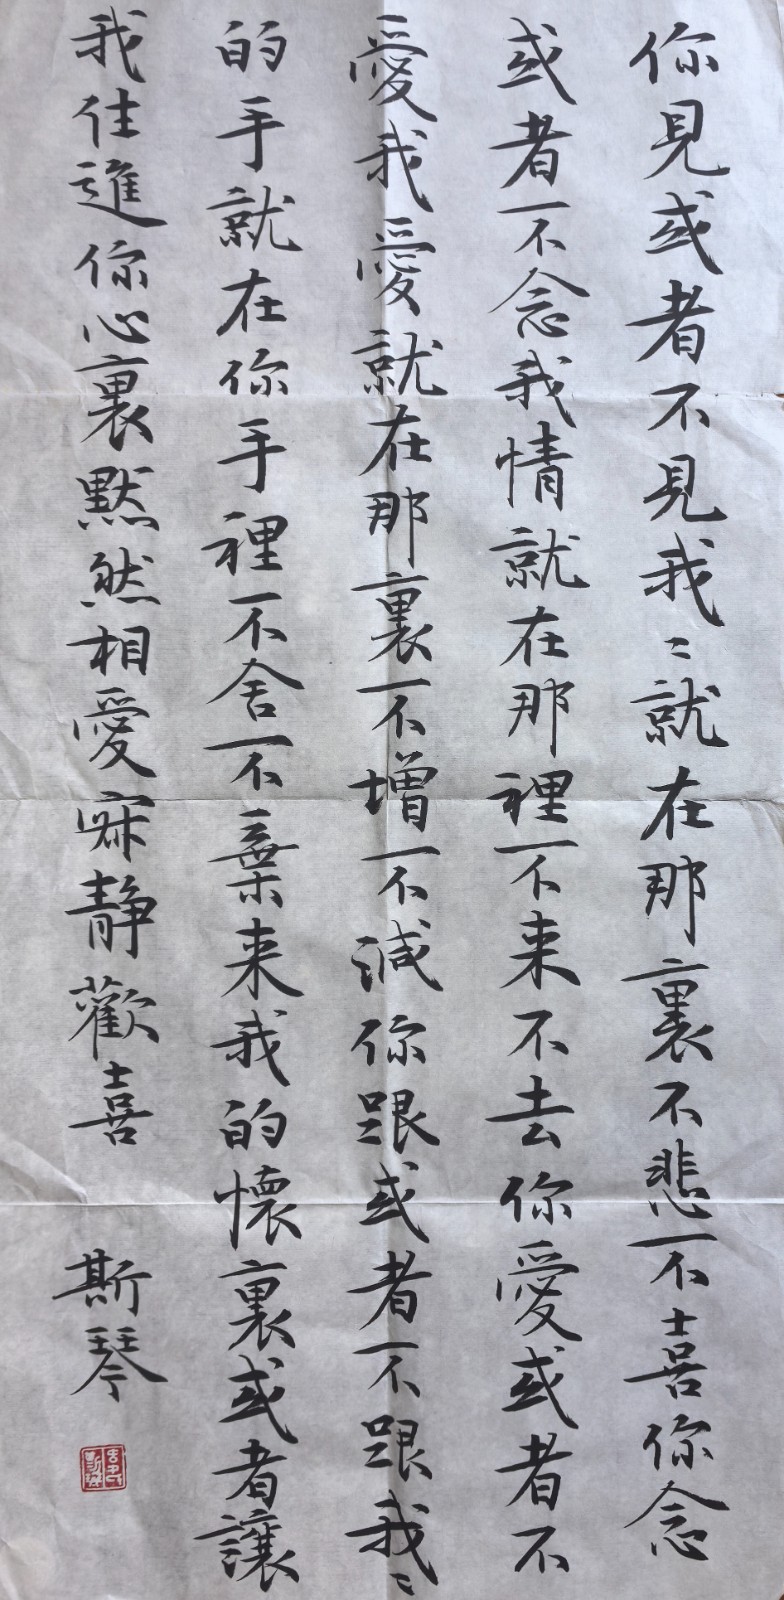 你見或者不見我〻就在那裏不悲不喜你念
或者不念我情就在那裡不来不去你愛或者不
愛我愛就在那裏不增不減你跟或者不跟我〻
的手就在你手裡不舍不棄来我的懷裏或者讓
我住進你心裏默然相愛寂静歡喜
斯琴